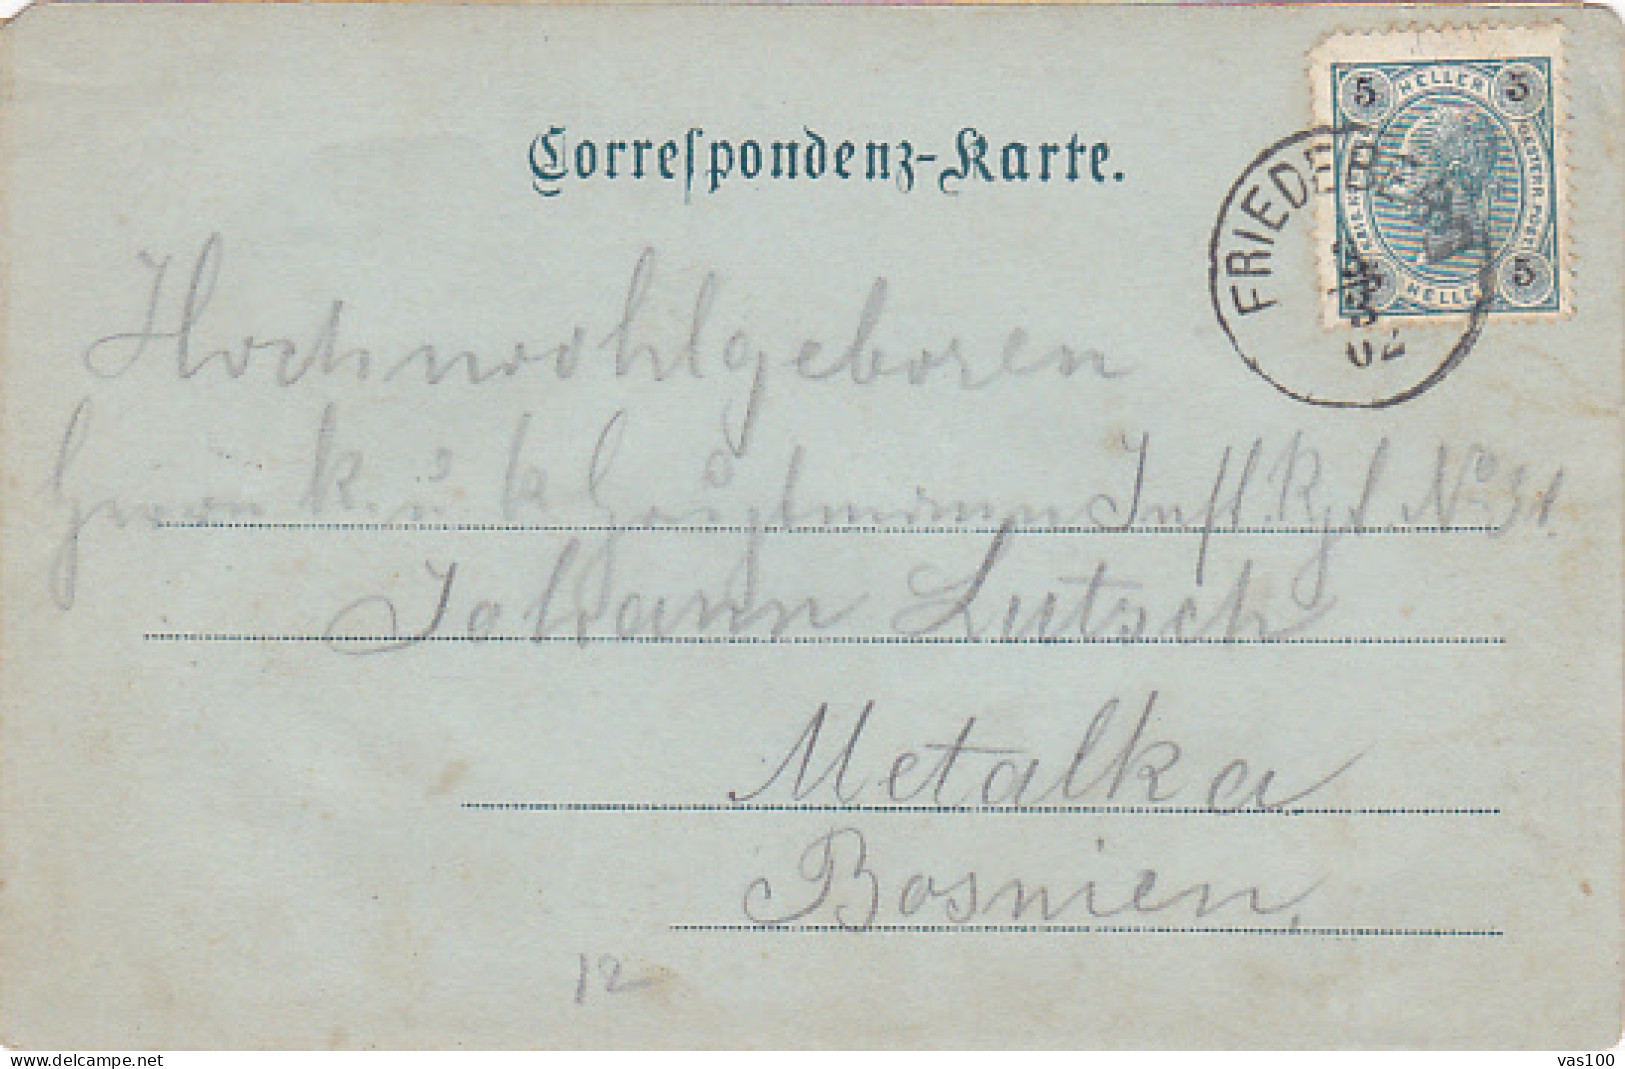 Correspondenz-Karte.
5 HELLER 5
5
HELLER
FRIEDE
02
Hochwohlgeboren
Herrn k. u k Hauptmann Inft. Rgt. No 31.
Johann Lutsch
Metalka
Bosnien.
12
delcampe.net
vas100